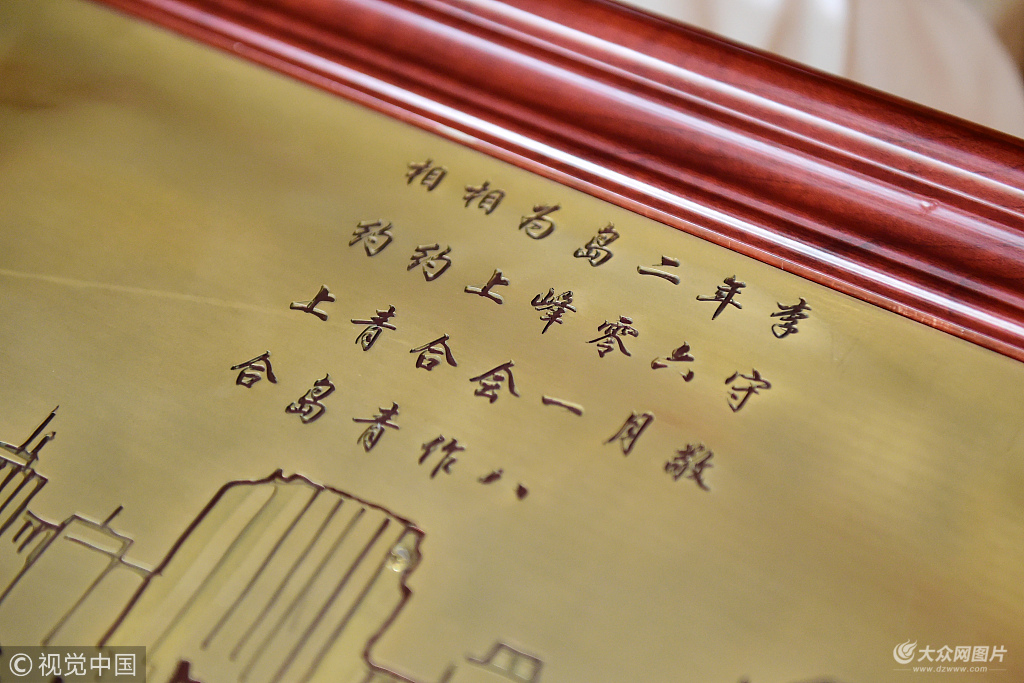 相约上合
相约青岛
为上合青
岛峰会作
二零一八
年六月
李守敬
©视觉中国
大众网图片
www.dzwww.com